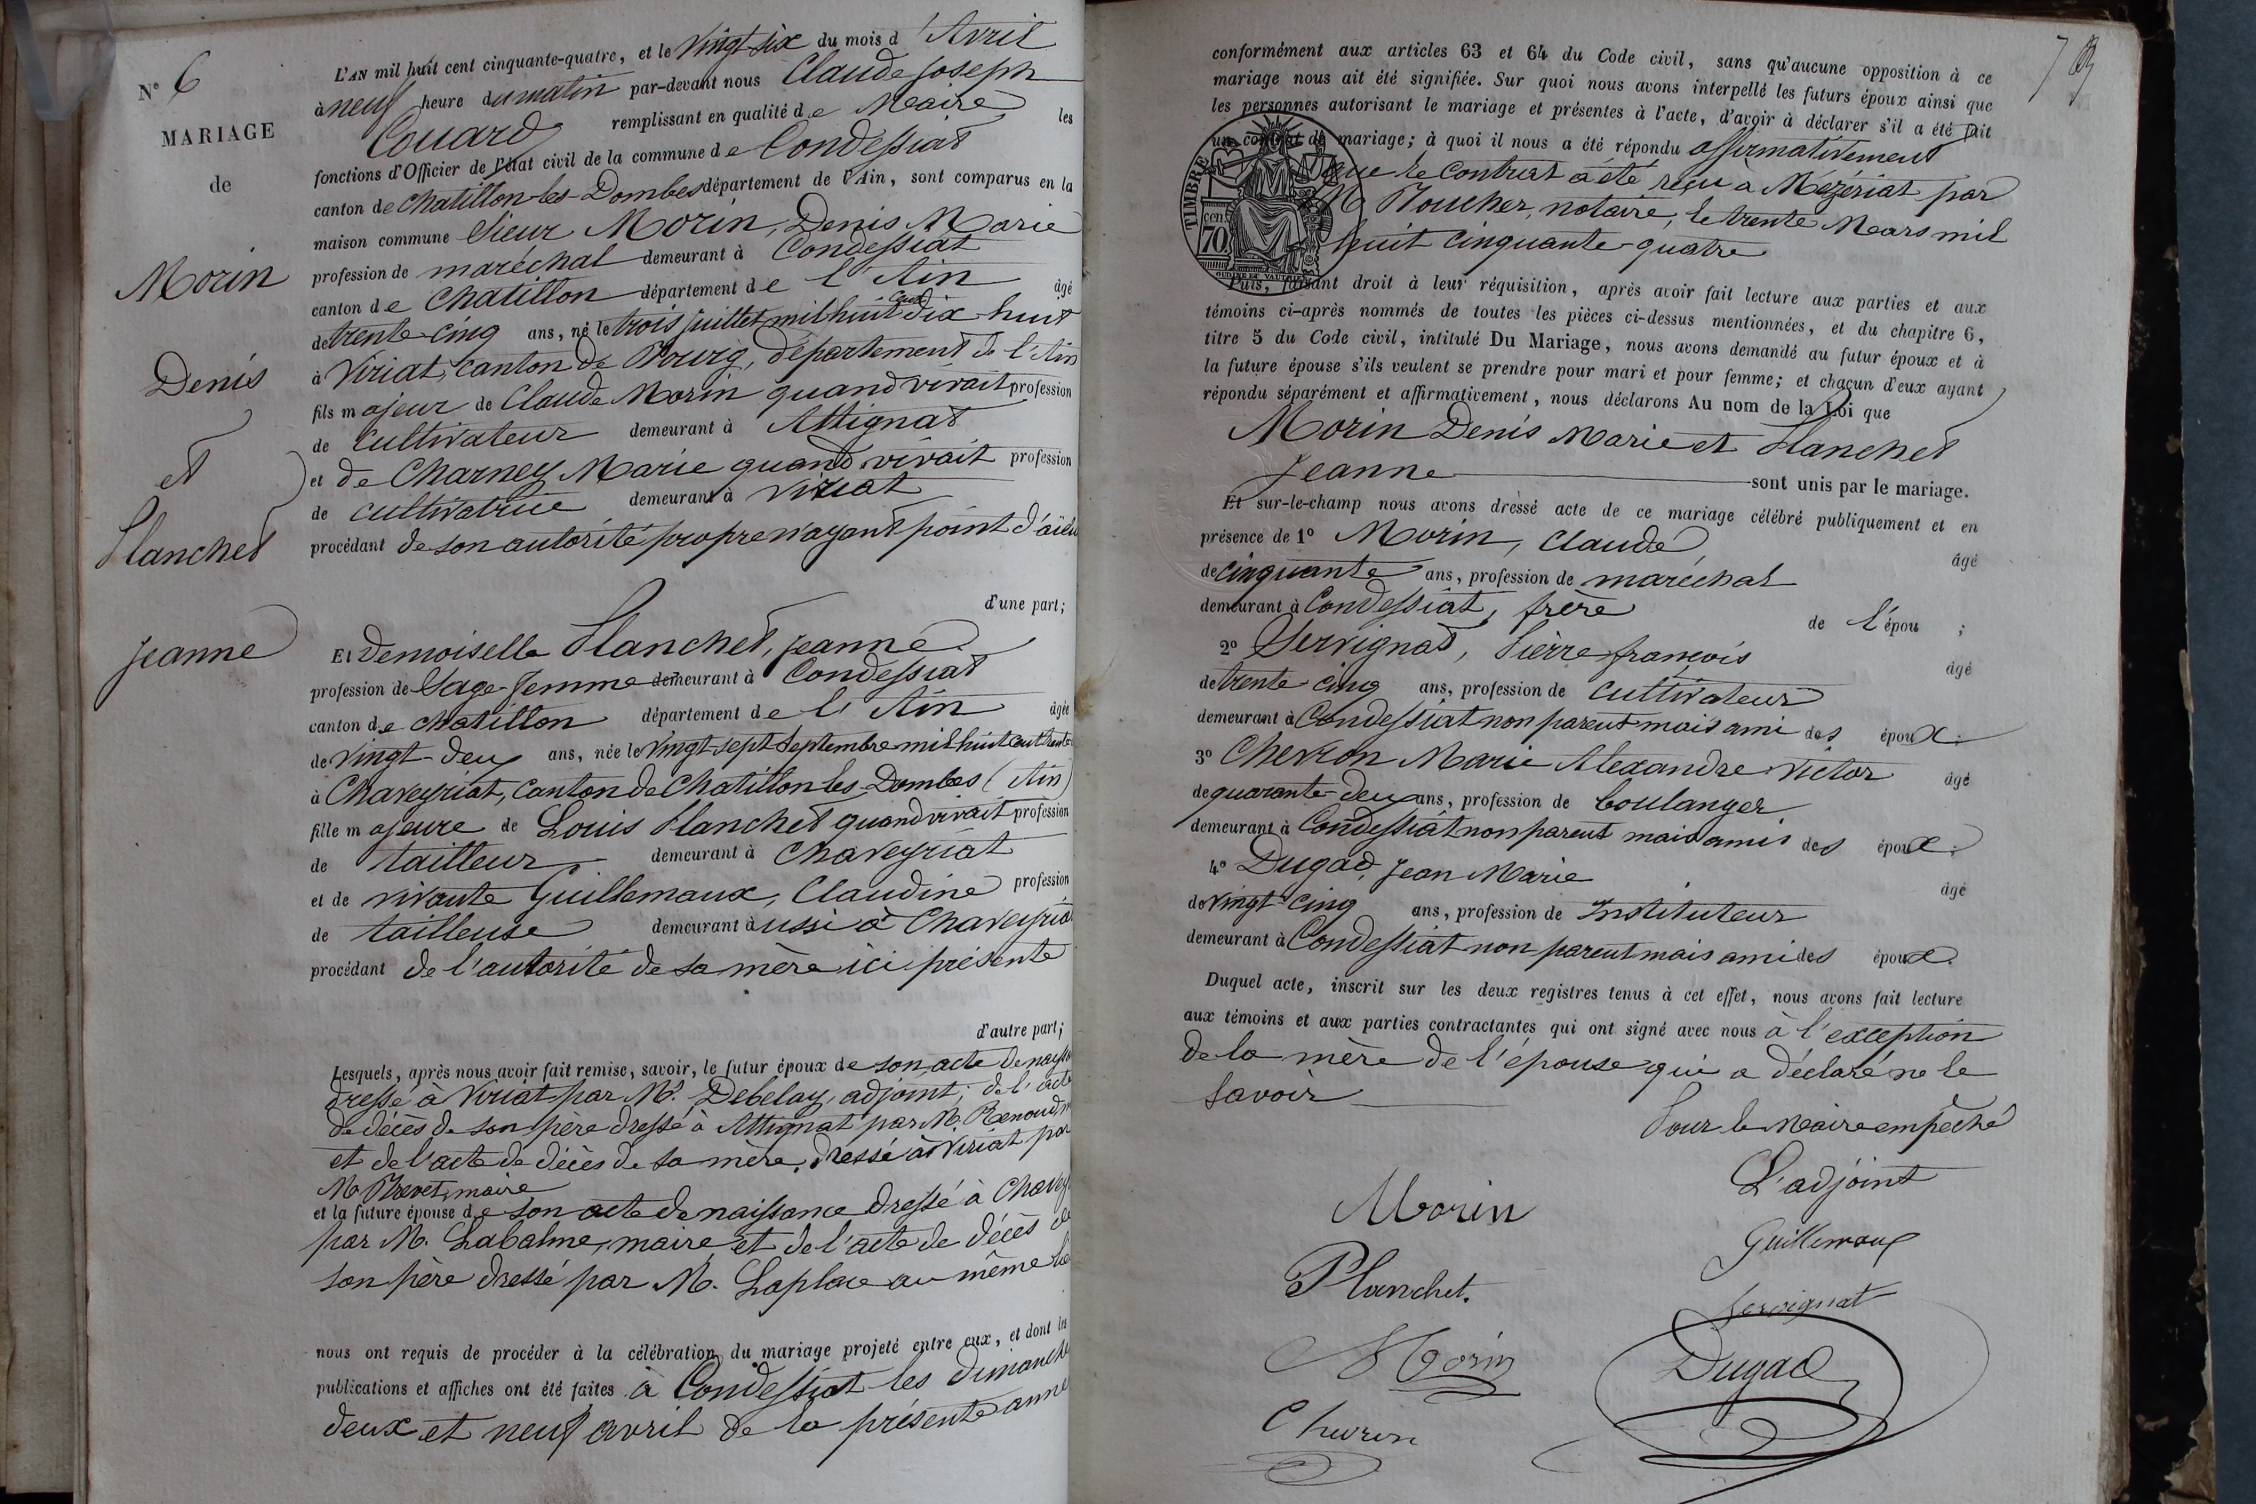 N° 6
MARIAGE
de
Morin
Denis
et
Planchet
Jeanne
L'AN mil huit cent cinquante-quatre, et le Vingt six du mois d'Avril
à neuf heure du matin par-devant nous Claude Joseph
Couard remplissant en qualité de Maire les
fonctions d'Officier de l'état civil de la commune de Condessiat
canton de Chatillon-les-Dombes département de l'Ain, sont comparus en la
maison commune Sieur Morin, Denis Marie
profession de maréchal demeurant à Condessiat
canton de Chatillon département de l'Ain âgé
de trente-cinq ans, né le trois juillet mil huit cent dix-huit
à Viriat, canton de Bourg, département de l'Ain
fils majeur de Claude Morin quand vivait profession
de cultivateur demeurant à Attignat
et de Charney Marie quand vivait profession
de cultivatrice demeurant à Viriat
procédant de son autorité propre n'ayant point d'aïeu
d'une part;
Et Demoiselle Planchet, Jeanne
profession de Sage-femme demeurant à Condessiat
canton de Chatillon département de l'Ain âgée
de vingt-deux ans, née le vingt-sept Septembre mil huit cent trente-
à Chaveyriat, canton de Chatillon les Dombes (Ain)
fille majeure de Louis Planchet quand vivait profession
de tailleur demeurant à Chaveyriat
et de vivante Guillemaux, Claudine profession
de tailleuse demeurant aussi à Chaveyria
procédant de l'autorité de sa mère ici présente
d'autre part;
Lesquels, après nous avoir fait remise, savoir, le futur époux de son acte de naiss
dressé à Viriat par Mr. Debelay, adjoint; de l'acte
de décès de son père dressé à Attignat par M. Renoud, m
et de l'acte de décès de sa mère, dressé à Viriat par
M. Brevet, maire
et la futur épouse de son acte de naissance dressé à Chavey
par M. Labalme, maire, et de l'acte de décès de
son père dressé par M. Laplace au même lie
nous ont requis de procéder à la célébration du mariage projeté entre eux, et dont les
publications et affiches ont été faites à Condessiat les dimanche
deux et neuf avril de la présente anné
conformément aux articles 63 et 64 du Code civil, sans qu'aucune opposition à ce
mariage nous ait été signifiée. Sur quoi nous avons interpellé les futurs époux ainsi que
les personnes autorisant le mariage et présentes à l'acte, d'avoir à déclarer s'il a été fait
un contrat de mariage; à quoi il nous a été répondu affirmativement
que le contrat a été reçu à Mézériat par
M. Boucher, notaire, le trente Mars mil
huit cinquante-quatre
TIMBRE
70 cen
Puis, faisant droit à leur réquisition, après avoir fait lecture aux parties et aux
témoins ci-après nommés de toutes les pièces ci-dessus mentionnées, et du chapitre 6,
titre 5 du Code civil, intitulé Du Mariage, nous avons demandé au futur époux et à
la future épouse s'ils veulent se prendre pour mari et pour femme; et chacun d'eux ayant
répondu séparément et affirmativement, nous déclarons Au nom de la Loi que
Morin Denis Marie et Planchet
Jeanne sont unis par le mariage.
Et sur-le-champ nous avons dressé acte de ce mariage célébré publiquement et en
présence de 1° Morin, Claude, âgé
de cinquante ans, profession de maréchal
demeurant à Condessiat, frère de l'épou ;
2° Servignat, Pierre françois âgé
de trente-cinq ans, profession de cultivateur
demeurant à Condessiat non parent mais ami des époux;
3° Chevron Marie Alexandre Victor âgé
de quarante-deux ans, profession de boulanger
demeurant à Condessiat non parent mais amis des époux;
4° Dugad, Jean Marie âgé
de vingt-cinq ans, profession de Instituteur
demeurant à Condessiat non parent mais ami des époux.
Duquel acte, inscrit sur les deux registres tenus à cet effet, nous avons fait lecture
aux témoins et aux parties contractantes qui ont signé avec nous à l'exception
de la mère de l'épouse qui a déclaré ne le
savoir
Pour le Maire empêché
L'adjoint
Morin
Guillemaux
Planchet.
Servignat
Morin
Dugad
Chevron